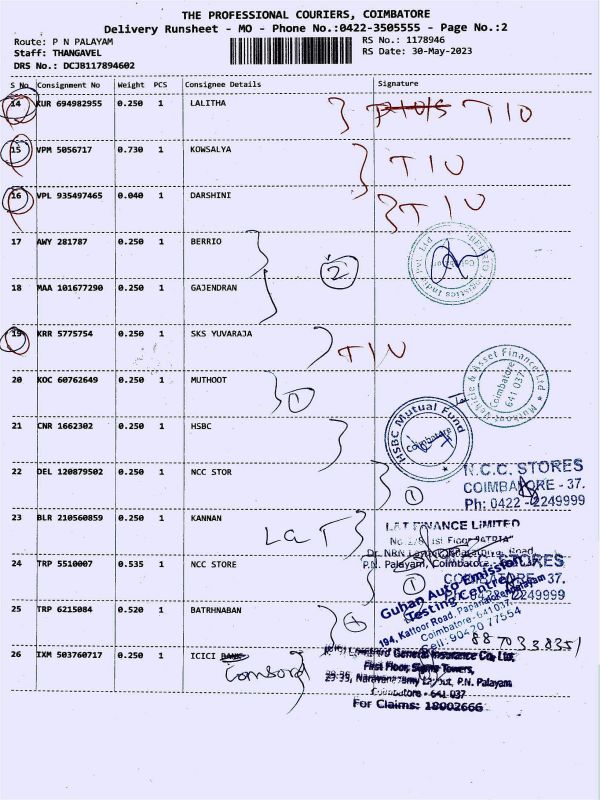 THE PROFESSIONAL COURIERS, COIMBATORE
Delivery Runsheet - MO - Phone No.:0422-3505555 - Page No.:2
Route: P N PALAYAM
Staff: THANGAVEL
DRS No.: DCJB117894602
RS No.: 1178946
RS Date: 30-May-2023
S No. Consignment No Weight PCS Consignee Details Signature
14 KUR 694982955 0.250 1 LALITHA TIU
15 VPM 5056717 0.730 1 KOWSALYA TIU
16 VPL 935497465 0.040 1 DARSHINI TIU
17 AWY 281787 0.250 1 BERRIO
2
18 MAA 101677290 0.250 1 GAJENDRAN
19 KRR 5775754 0.250 1 SKS YUVARAJA TIU
20 KOC 60762649 0.250 1 MUTHOOT 1
Muthoot Vehicle & Asset Finance Ltd
Coimbatore
641 037
21 CNR 1662302 0.250 1 HSBC
HSBC Mutual Fund
Coimbatore
22 DEL 120879502 0.250 1 NCC STOR 1
N.C.C. STORES
COIMBATORE - 37.
Ph: 0422 - 2249999
23 BLR 210560859 0.250 1 KANNAN L&T
L&T FINANCE LIMITED
1st Floor
P.N. Palayam, Coimbatore
24 TRP 5510007 0.535 1 NCC STORE 1
STORES
- 37.
2249999
25 TRP 6215084 0.520 1 BATRHNABAN
Guhan Auto Emission
Testing Centre
194, Kattoor Road, Papanaickenpalayam
Coimbatore-641037.
Cell: 90420 77554
8870338351
26 IXM 503760717 0.250 1 ICICI
General Insurance Co, Ltd,
First Floor, Towers,
P.N. Palayam
Coimbatore - 641 037
For Claims: 18002666